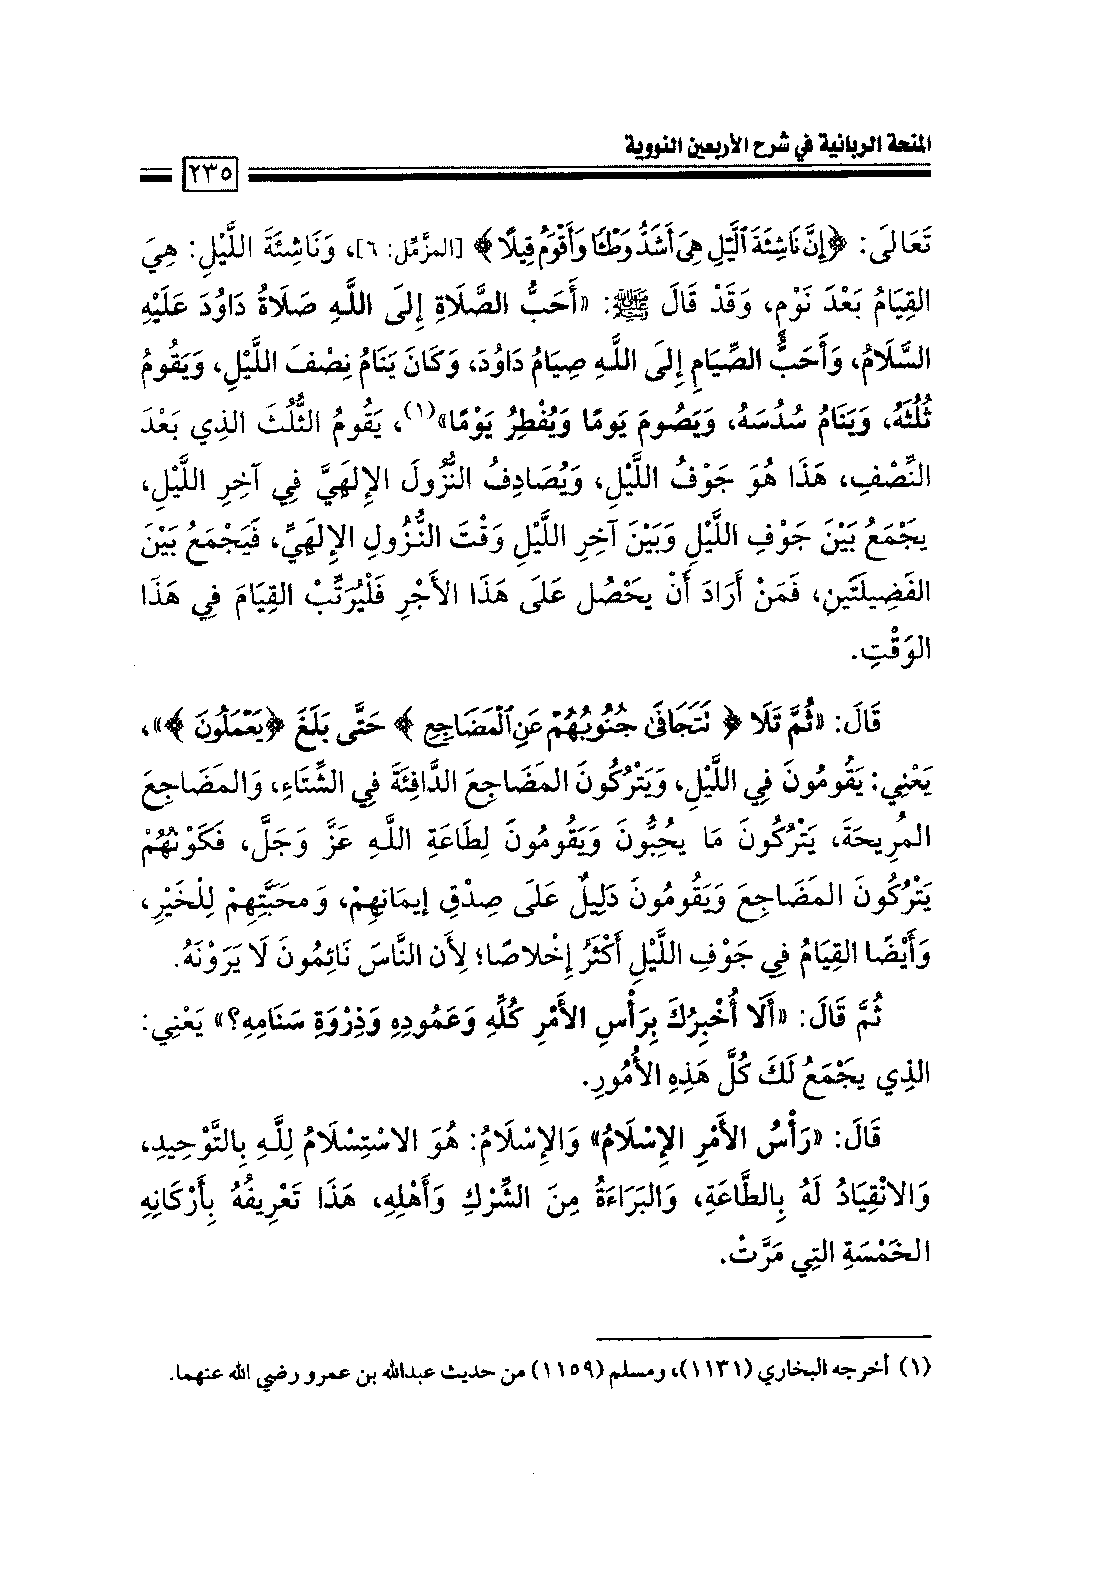 المنحة الربانية في شرح الأربعين النووية
٢٣٥
تَعَالَى: ﴿إِنَّ نَاشِئَةَ ٱلَّيْلِ هِىَ أَشَدُّ وَطْـًٔا وَأَقْوَمُ قِيلًا﴾ [المزَّمِّل: ٦]، وَنَاشِئَةَ اللَّيْلِ: هِيَ
القِيَامُ بَعْدَ نَوْمٍ، وَقَدْ قَالَ ﷺ: «أَحَبُّ الصَّلَاةِ إِلَى اللَّهِ صَلَاةُ دَاوُدَ عَلَيْهِ
السَّلَامُ، وَأَحَبُّ الصِّيَامِ إِلَى اللَّهِ صِيَامُ دَاوُدَ، وَكَانَ يَنَامُ نِصْفَ اللَّيْلِ، وَيَقُومُ
ثُلُثَهُ، وَيَنَامُ سُدُسَهُ، وَيَصُومَ يَومًا وَيُفْطِرُ يَوْمًا»(١)، يَقُومُ الثُّلُثَ الذِي بَعْدَ
النِّصْفِ، هَذَا هُوَ جَوْفُ اللَّيْلِ، وَيُصَادِفُ النُّزُولَ الإِلَهَيَّ فِي آخِرِ اللَّيْلِ،
يَجْمَعُ بَيْنَ جَوْفِ اللَّيْلِ وَبَيْنَ آخِرِ اللَّيْلِ وَقْتَ النُّزُولِ الإِلَهَيِّ، فَيَجْمَعُ بَيْنَ
الفَضِيلَتَينِ، فَمَنْ أَرَادَ أَنْ يَحْصُل عَلَى هَذَا الأَجْرِ فَلْيُرَتِّبْ القِيَامَ فِي هَذَا
الوَقْتِ.
قَالَ: «ثُمَّ تَلَا ﴿نَتَجَافَىٰ جُنُوبُهُمْ عَنِ ٱلْمَضَاجِعِ﴾ حَتَّى بَلَغَ ﴿يَعْمَلُونَ﴾»،
يَعْنِي: يَقُومُونَ فِي اللَّيْلِ، وَيَتْرُكُونَ المَضَاجِعَ الدَّافِئَةَ فِي الشِّتَاءِ، وَالمَضَاجِعَ
المُرِيحَةَ، يَتْرُكُونَ مَا يُحِبُّونَ وَيَقُومُونَ لِطَاعَةِ اللَّهِ عَزَّ وَجَلَّ، فَكَوْنُهُمْ
يَتْرُكُونَ المَضَاجِعَ وَيَقُومُونَ دَلِيلٌ عَلَى صِدْقِ إِيمَانِهِمْ، وَمَحَبَّتِهِمْ لِلْخَيْرِ،
وَأَيْضًا القِيَامُ فِي جَوْفِ اللَّيْلِ أَكْثَرُ إِخْلاصًا؛ لِأَن النَّاسَ نَائِمُونَ لَا يَرَوْنَهُ.
ثُمَّ قَالَ: «أَلَا أُخْبِرُكَ بِرَأْسِ الأَمْرِ كُلِّهِ وَعَمُودِهِ وَذِرْوَةِ سَنَامِهِ؟» يَعْنِي:
الذِي يَجْمَعُ لَكَ كُلَّ هَذِهِ الأُمُورِ.
قَالَ: «رَأْسُ الأَمْرِ الإِسْلَامُ» وَالإِسْلَامُ: هُوَ الاسْتِسْلَامُ لِلَّهِ بِالتَّوْحِيدِ،
وَالانْقِيَادُ لَهُ بِالطَّاعَةِ، وَالبَرَاءَةُ مِنَ الشِّرْكِ وَأَهْلِهِ، هَذَا تَعْرِيفُهُ بِأَرْكَانِهِ
الخَمْسَةِ التِي مَرَّتْ.
(١) أخرجه البخاري (١١٣١)، ومسلم (١١٥٩) من حديث عبدالله بن عمرو رضي الله عنهما.